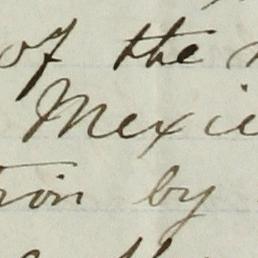 of the
Mexic
tion by